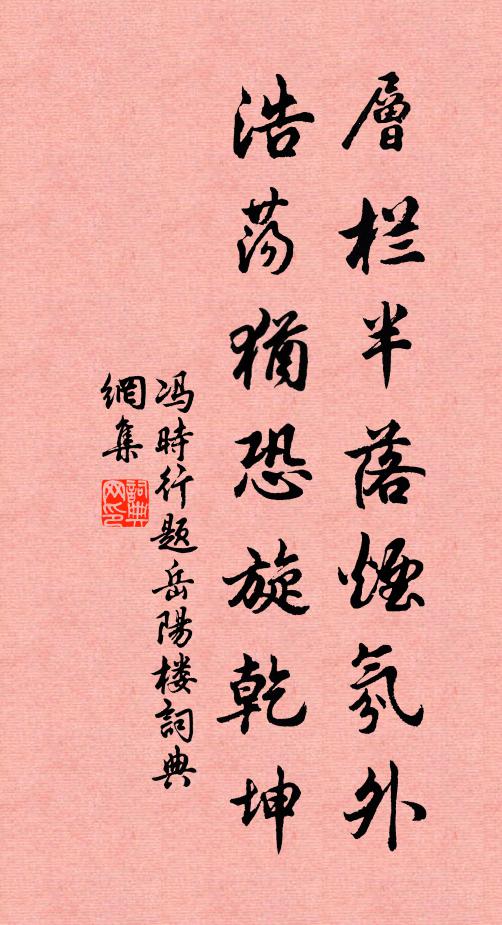 層栏半落煙氛外
浩荡猶恐旋乾坤
冯時行题岳陽楼詞典
網集
詞典
网印